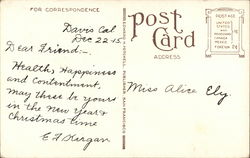 FOR CORRESPONDENCE
Davis Cal
Dec 22-15
Dear Friend:-
Health, Happiness
and Contentment,
may these be yours
in the new year &
Christmas time
E F
POST
CARD
ADDRESS
POSTAGE
UNITED STATES
CANADA
MEXICO
FOREIGN 2¢
Miss Alice Ely